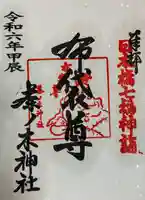 奉拝
日本橋七福神詣
布袋尊
茶ノ木神社
令和六年甲辰